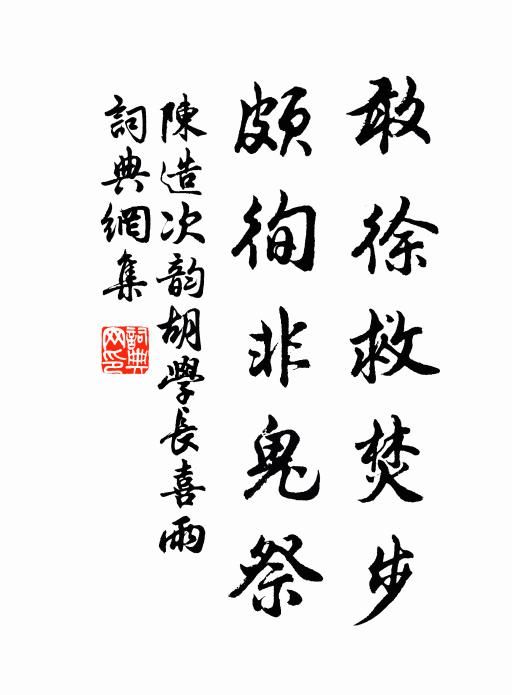 敢徐救焚步
頗徇非鬼祭
陳造次韵胡學長喜雨
詞典網集
詞典网印